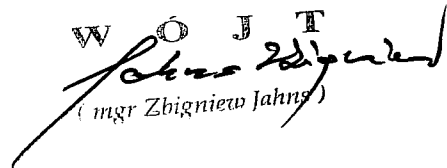 W Ó J T
Jahns Zbigniew
( mgr Zbigniew Jahns )